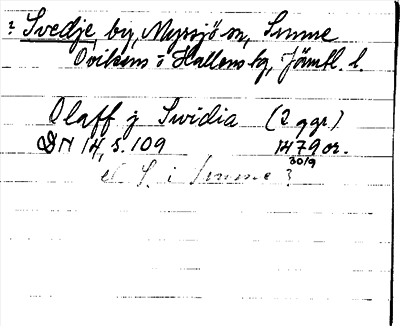 ? Svedje, by, Myssjö sn, Sunne
Ovikens o Hallens tg, Jämtl. l.
Olaff j Swidia (2 ggr)
DN 14, s. 109 1479 or.
30/9
el S. i Sunne?